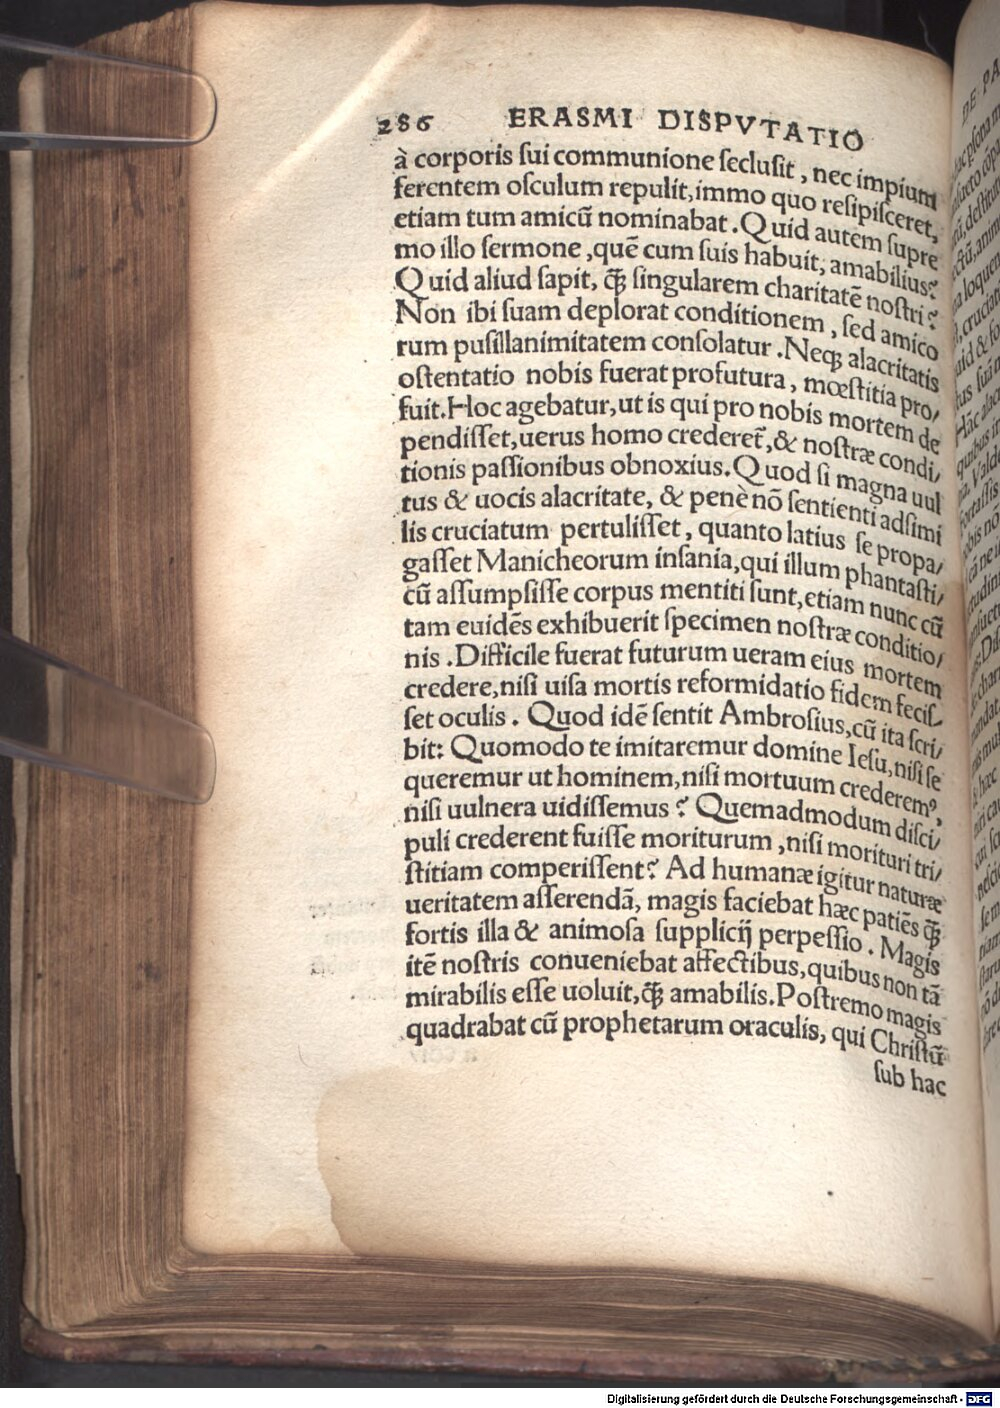 286 ERASMI DISPVTATIO
à corporis ſui communione ſecluſit, nec impium
ferentem oſculum repulit, immo quo reſipiſceret,
etiam tum amicū nominabat. Quid autem ſupre
mo illo ſermone, quē cum ſuis habuit, amabilius?
Quid aliud ſapit, ꝙ̃ ſingularem charitatē noſtri?
Non ibi ſuam deplorat conditionem, ſed amico
rum puſillanimitatem conſolatur. Neqꝫ alacritatis
oſtentatio nobis fuerat profutura, mœſtitia pro/
fuit. Hoc agebatur, ut is qui pro nobis mortem de
pendiſſet, uerus homo crederet᷑, & noſtræ condi/
tionis paſſionibus obnoxius. Quod ſi magna uul
tus & uocis alacritate, & penè nō ſentienti adſimi
lis cruciatum pertuliſſet, quanto latius ſe propa/
gaſſet Manicheorum inſania, qui illum phantaſti/
cū aſſumpſiſſe corpus mentiti ſunt, etiam nunc cū
tam euidēs exhibuerit ſpecimen noſtræ conditio/
nis. Difficile fuerat futurum ueram eius mortem
credere, niſi uiſa mortis reformidatio fidem feciſ-
ſet oculis. Quod idē ſentit Ambroſius, cū ita ſcri/
bit: Quomodo te imitaremur domine Ieſu, niſi ſe
queremur ut hominem, niſi mortuum crederemꝰ,
niſi uulnera uidiſſemus? Quemadmodum diſci/
puli crederent fuiſſe moriturum, niſi morituri tri/
ſtitiam comperiſſent? Ad humanæ igitur naturæ
ueritatem aſſerendā, magis faciebat hæc patiēs ꝙ̃
fortis illa & animoſa ſupplicij perpeſſio. Magis
itē noſtris conueniebat affectibus, quibus non tā
mirabilis eſſe uoluit, ꝙ̃ amabilis. Poſtremo magis
quadrabat cū prophetarum oraculis, qui Chriſtū
ſub hac
Digitalisierung gefördert durch die Deutsche Forschungsgemeinschaft - DFG